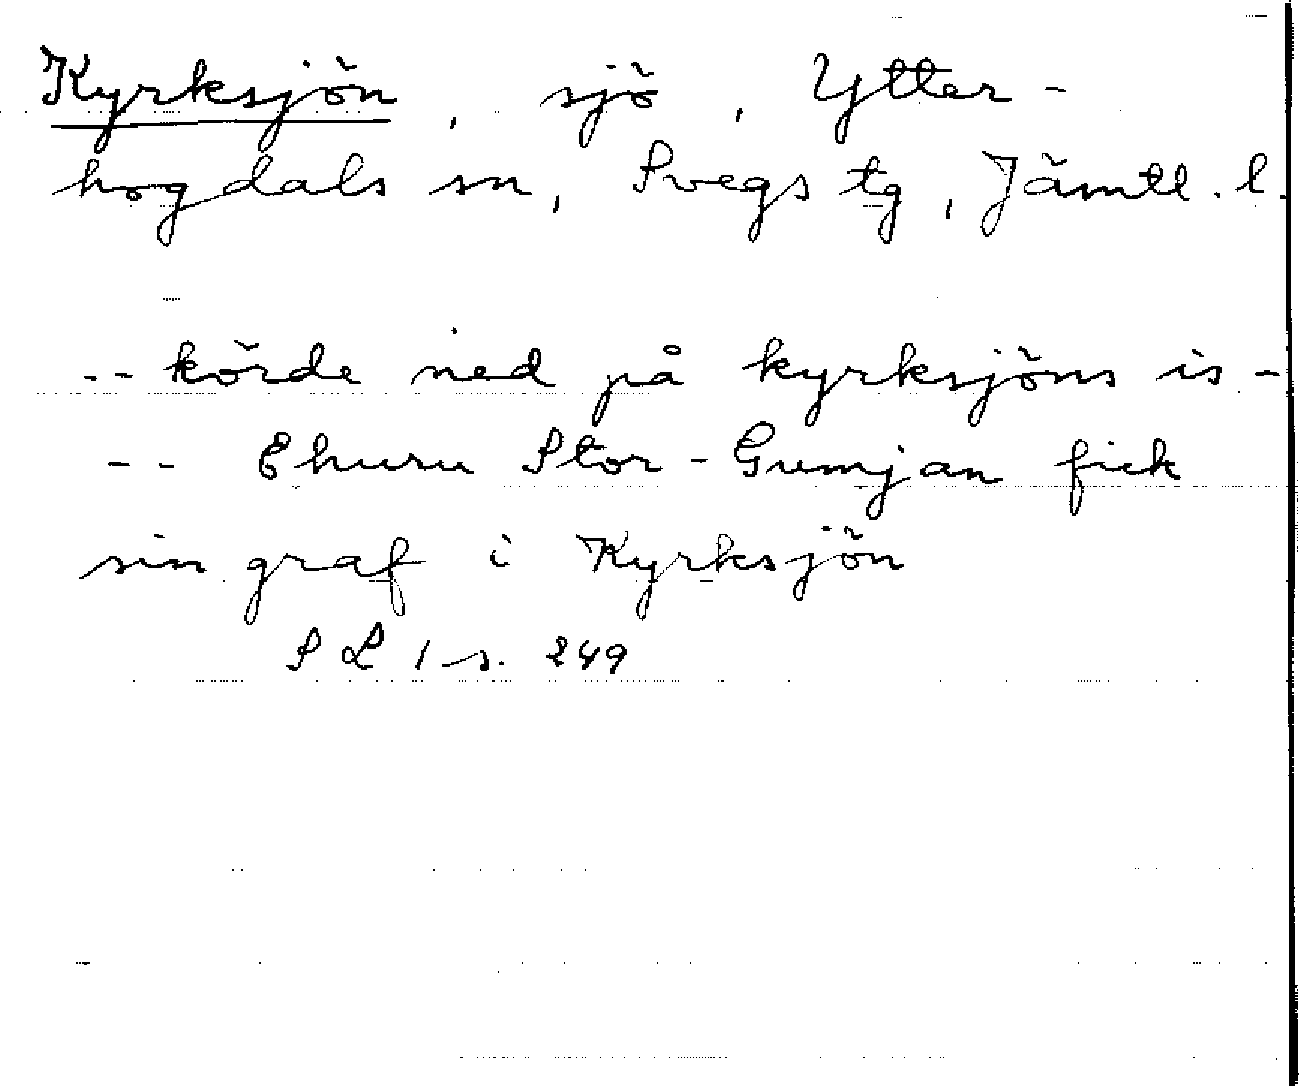 Kyrksjön, sjö, Ytter-
hogdals sn, Svegs tg, Jämtl. l.
-- körde ned på kyrksjöns is -
-- Ehuru Stor-Gumjan fick
sin graf i Kyrksjön
S L 1 s. 249